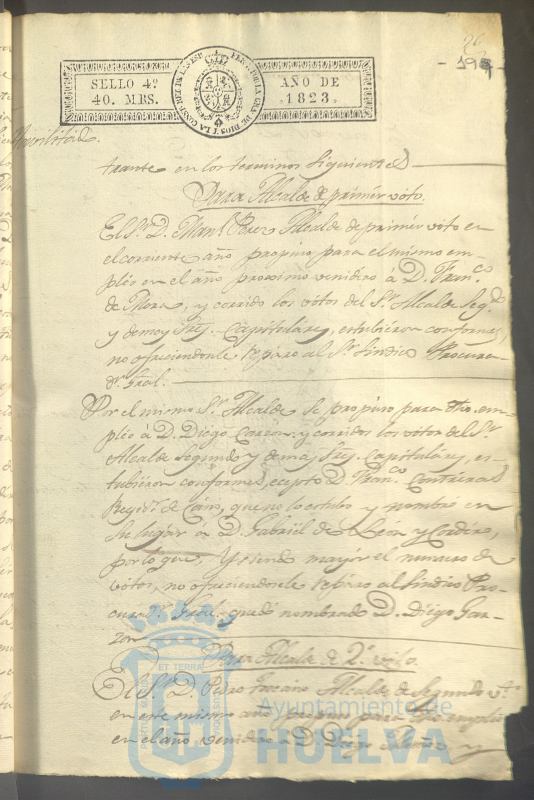 96
199
SELLO 4º
40. MRS.
AÑO DE
1823.
trante en los terminos siguientes
Para Alcalde de primer voto.
El Sr. D. Manl. Perez Alcalde de primer voto en
el corriente año propuso para el mismo em-
pleo en el año proximo venidero á D. Franco.
de Mora, y corrido los votos del Sr. Alcalde Segdo.
y demas Sres. Capitulares, estubieron conformes,
no ofreciendosele reparo al Sr. Sindico Procura-
dor. Gral.
Por el mismo Sr. Alcalde se propuso para dho. em-
pleo á D. Diego Garzon: y corridos los votos del Sr.
Alcalde segundo y demas Sres. Capitulares, es-
tubieron conformes, ecepto D. Franco. Contreras
Regidr. de Cano, que no lo estubo y nombró en
su lugar á D. Gabriel de Leon y Cordero,
por lo que, y siendo mayor el numero de
votos, no ofreciendosele reparo al Sindico Pro-
curador Gral. quedó nombrado D. Diego Gar-
zon
Para Alcalde de 2º. voto.
El Sr. D. Pedro Alcalde de Segundo vto.
en este mismo año propuso para dho. empleo
en el año venidero a D. Diego y
ET TERRA
Ayuntamiento de
HUELVA